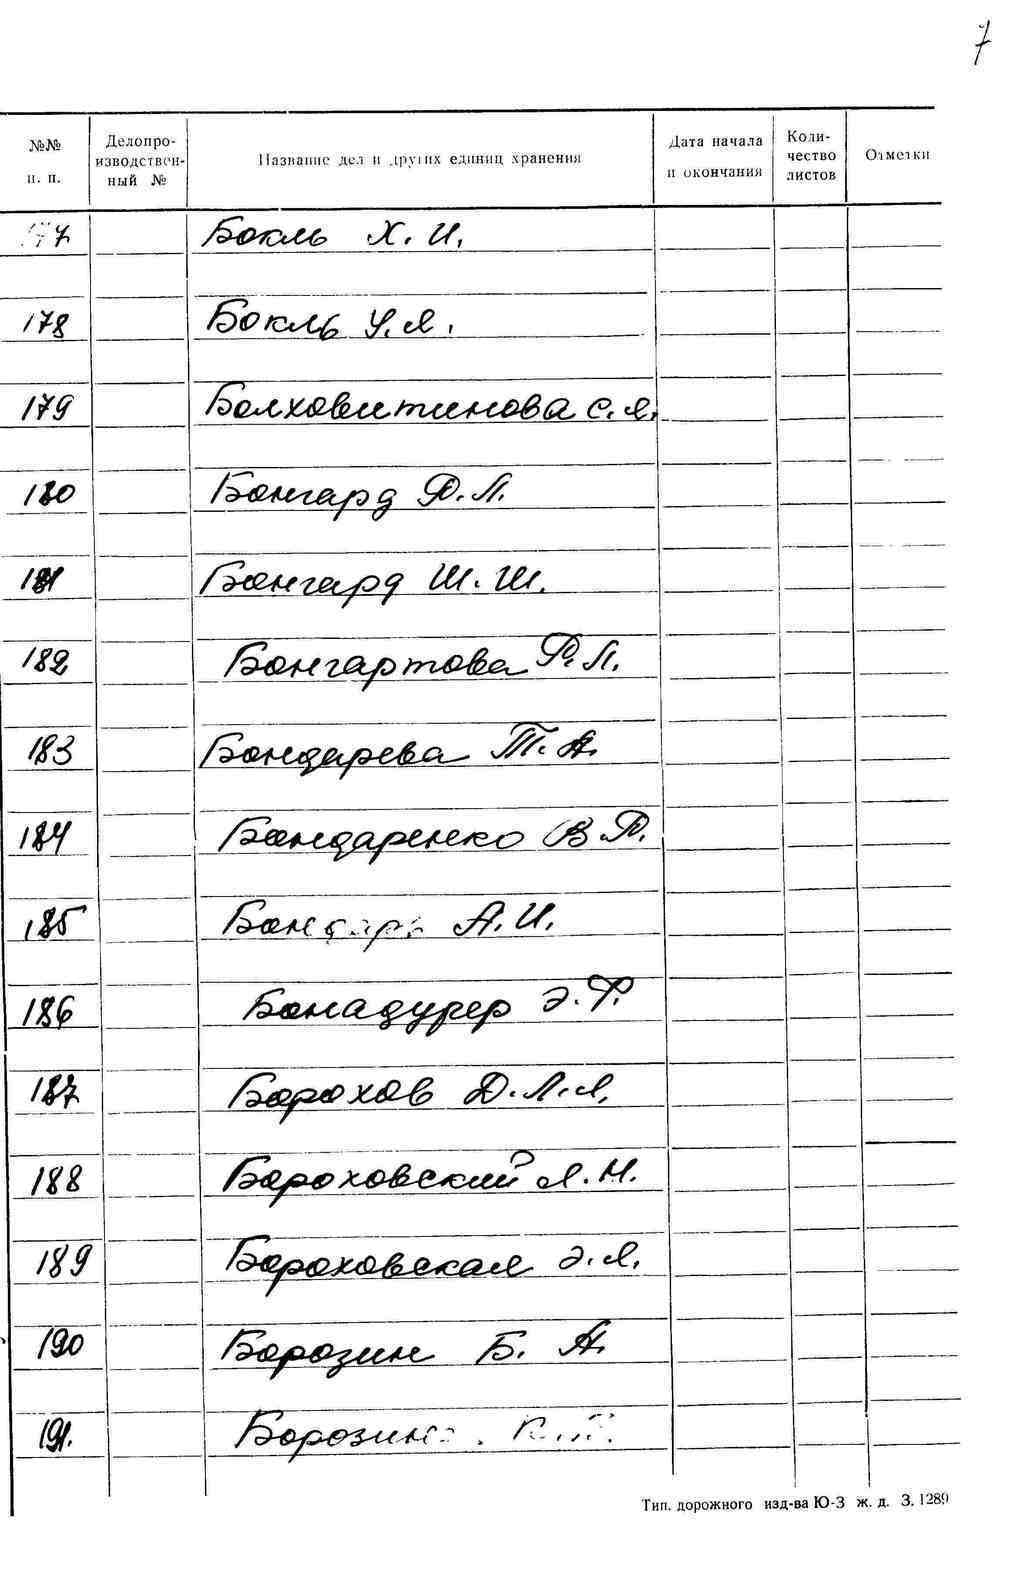 7
№№ п. п. Делопроизводствен-ный № Название дел и других единиц хранения Дата начала и окончания Коли-чество листов Отметки
177 Бокль Х. И.
178 Бокль У. Я.
179 Болховитинова С. Я.
180 Бонгард Ф. Л.
181 Бонгард Ш. Ш.
182 Бонгартова Р. Л.
183 Бондарева Т. А.
184 Бондаренко В. П.
185 Бондарь А. И.
186 Бонадурер Э. Р.
187 Борохов Д. Л. Я.
188 Бороховский Я. Н.
189 Бороховская Э. Я.
190 Борозин Б. А.
191. Борозина
Тип. дорожного изд-ва Ю-З ж. д. З. 1289